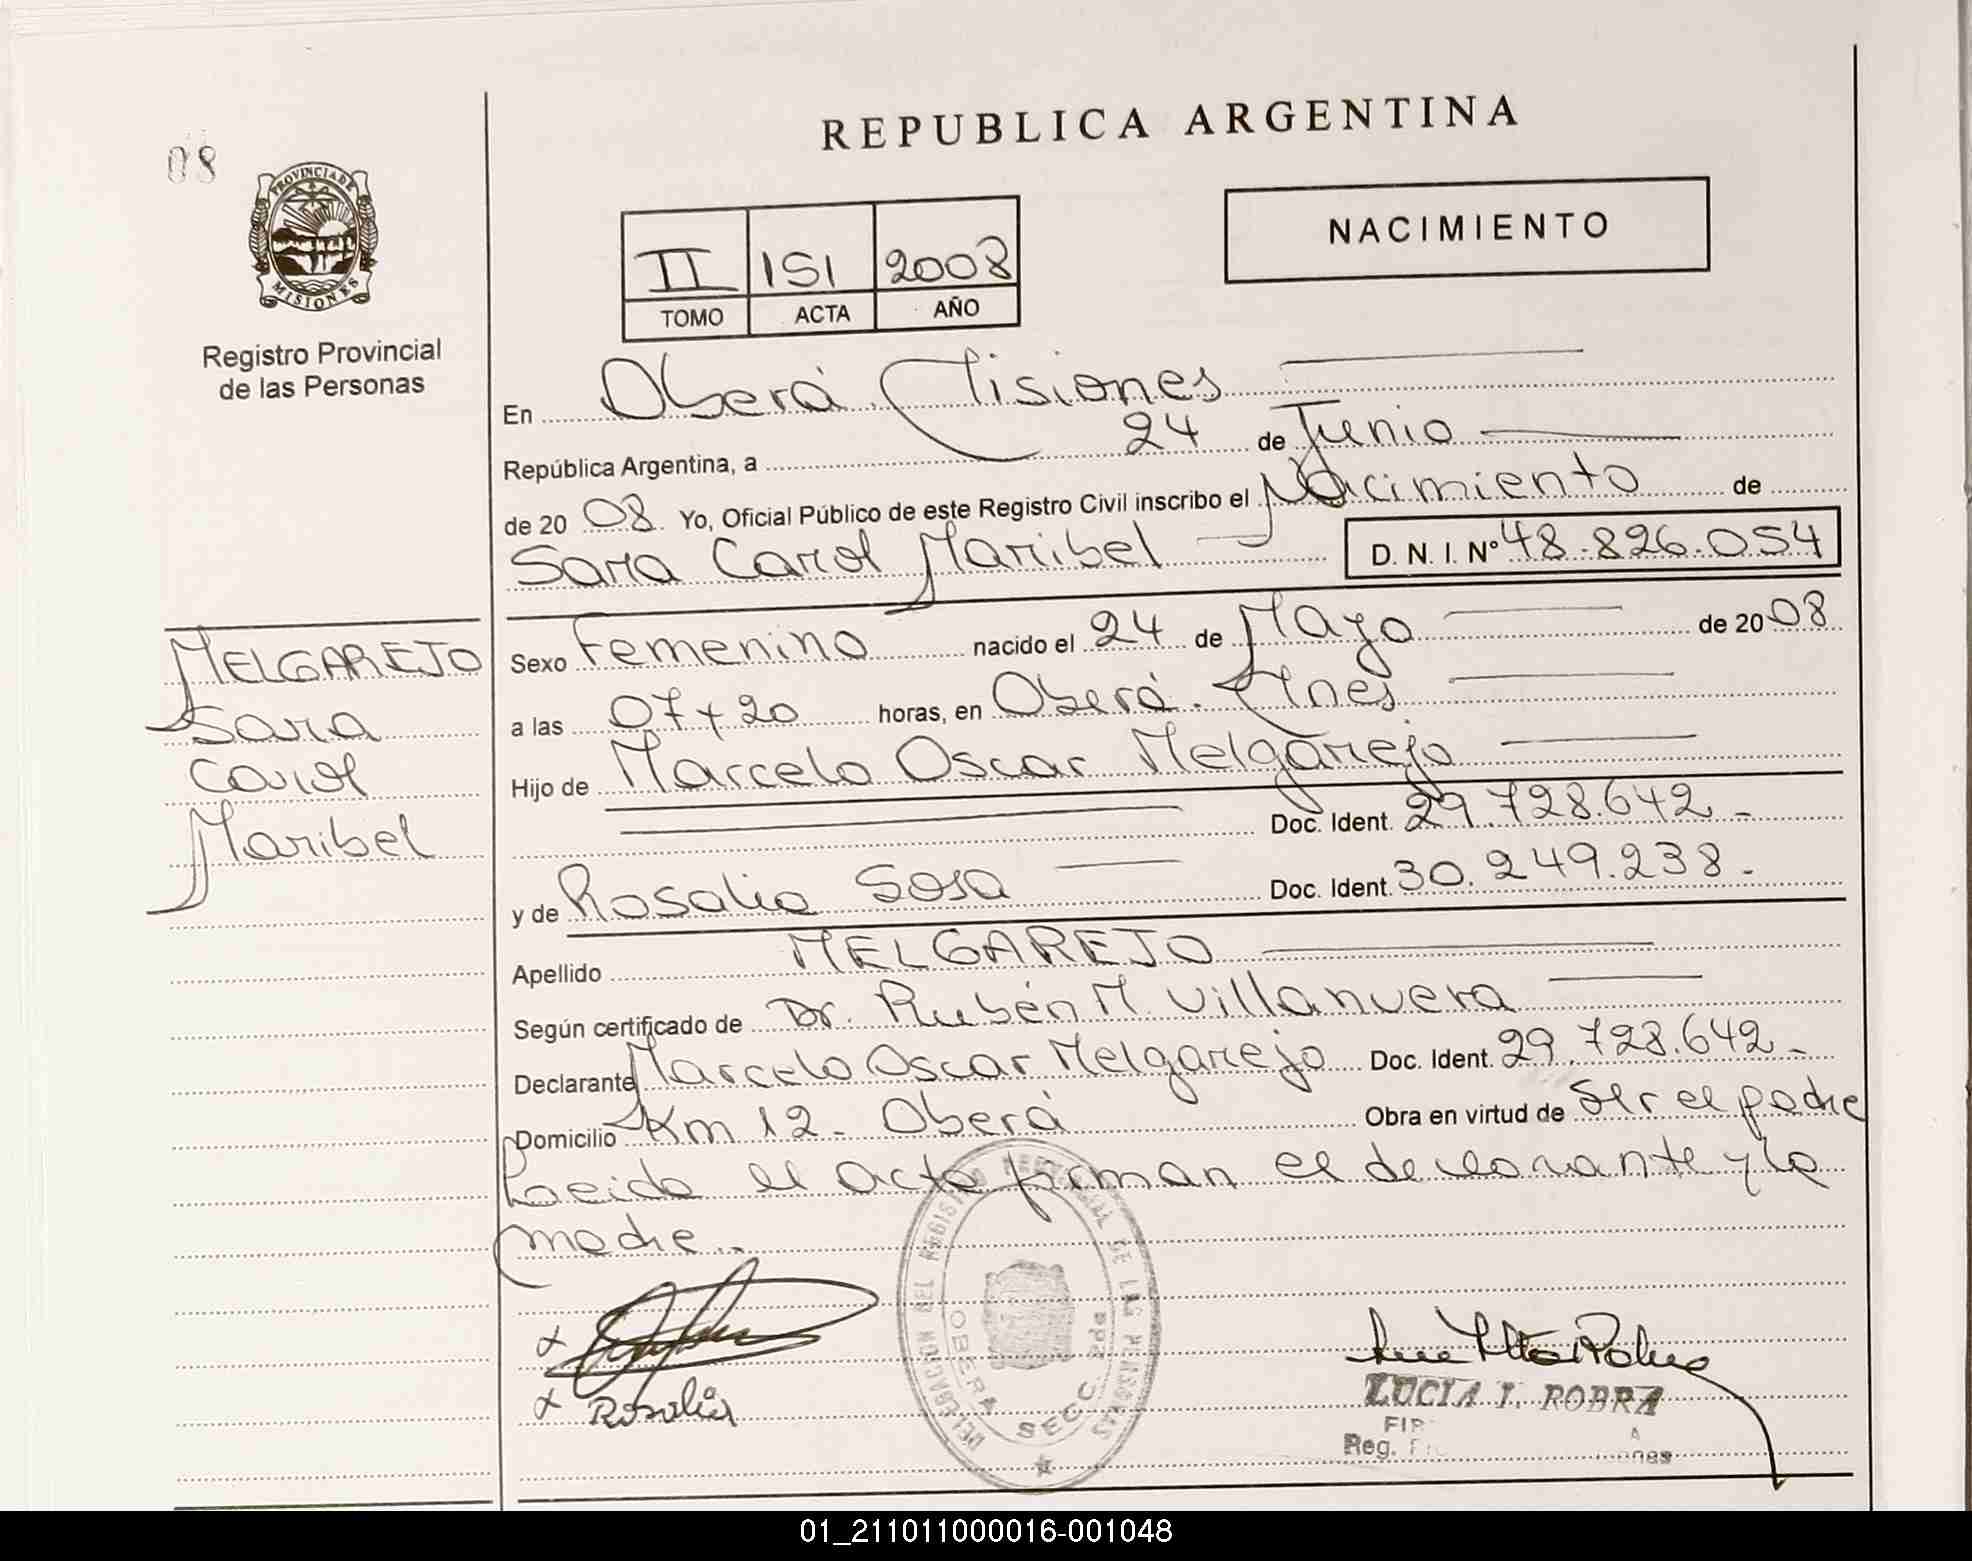 REPUBLICA ARGENTINA
08
PROVINCIA DE
MISIONES
Registro Provincial
de las Personas
NACIMIENTO
II 151 2008
TOMO ACTA AÑO
En Oberá Misiones
República Argentina, a 24 de Junio
de 20 08 Yo, Oficial Público de este Registro Civil inscribo el Nacimiento de
Sara Carol Maribel D. N. I. Nº 48.826.054
MELGAREJO
Sara
Carol
Maribel
Sexo Femenino nacido el 24 de Mayo de 20 08
a las 07 y 20 horas, en Oberá. Mnes
Hijo de Marcelo Oscar Melgarejo
Doc. Ident. 29.728.642-
y de Rosalia Sosa Doc. Ident. 30.249.238.-
Apellido MELGAREJO
Según certificado de Dr. Rubén M. Villanueva
Declarante Marcelo Oscar Melgarejo Doc. Ident. 29.728.642-
Domicilio Km 12- Oberá Obra en virtud de Ser el padre
Leida el Acta firman el declarante y la
madre..
Rosalia
DELEGACION DEL REGISTRO PROVINCIAL DE LAS PERSONAS
OBERA SECC. 2da
LUCIA I. ROBRA
Reg.
01_211011000016-001048